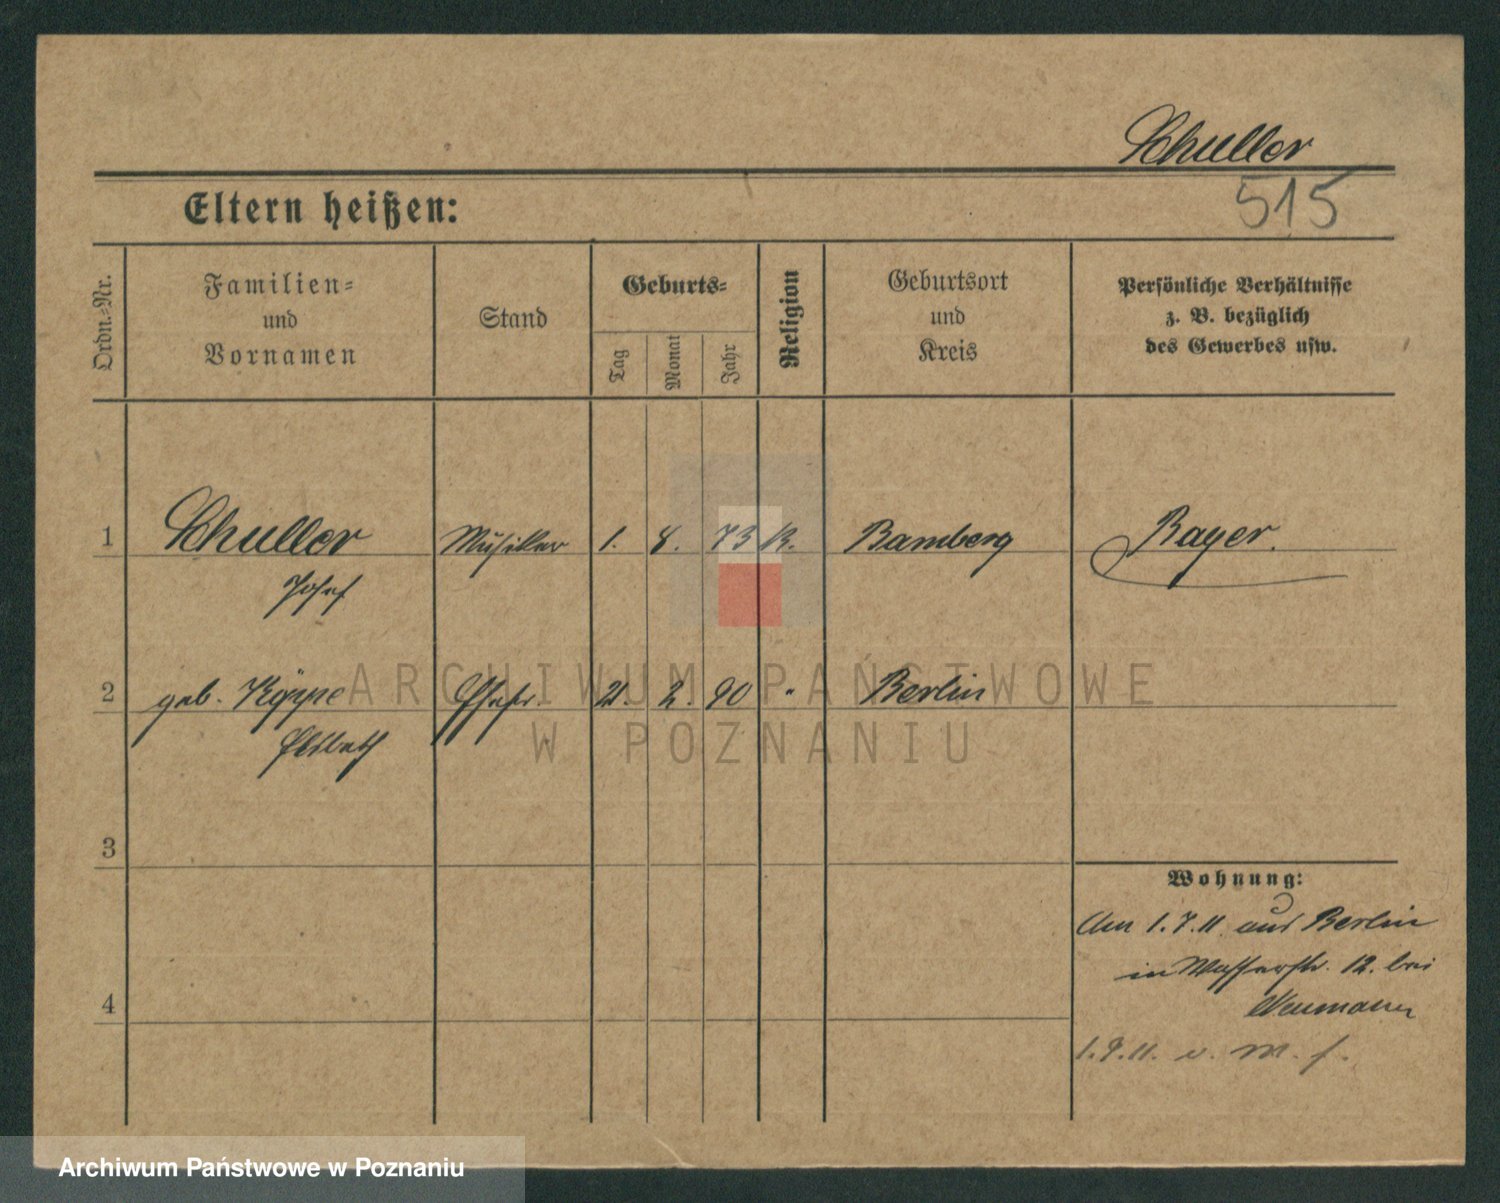 Schuller
515
Eltern heißen:
Ordn.-Nr.
Familien-
und
Vornamen
Stand
Geburts-
Tag
Monat
Jahr
Religion
Geburtsort
und
Kreis
Persönliche Verhältnisse
z. B. bezüglich
des Gewerbes usw.
1 Schuller Musiker 1. 8. 73 K. Bamberg Bayer.
Josef
2 geb. Köppe Ehefr. 2. 90 " Berlin
Elsbeth
3
Wohnung:
Am 1.7.11. aus Berlin
in Wasserstr. 12. bei
Neumann
4
1.9.11. v. M. f.
ARCHIWUM PAŃSTWOWE
W POZNANIU
Archiwum Państwowe w Poznaniu